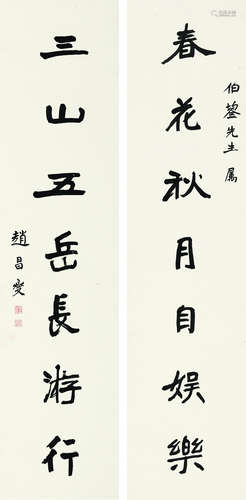 伯鋆先生属
春花秋月自娱樂
三山五岳長游行
趙昌燮